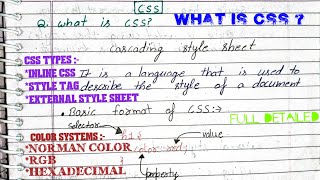 CSS
Q. what is css?
WHAT IS CSS ?
Cascading style sheet
CSS TYPES :-
*INLINE CSS It is a language that is used to
*STYLE TAG describe the style of a document
*EXTERNAL STYLE SHEET
• Basic format of CSS:→
FULL DETAILED
selector
COLOR SYSTEMS :- h1 {
value
*NORMAN COLOR color: red;
*RGB }
*HEXADECIMAL
property